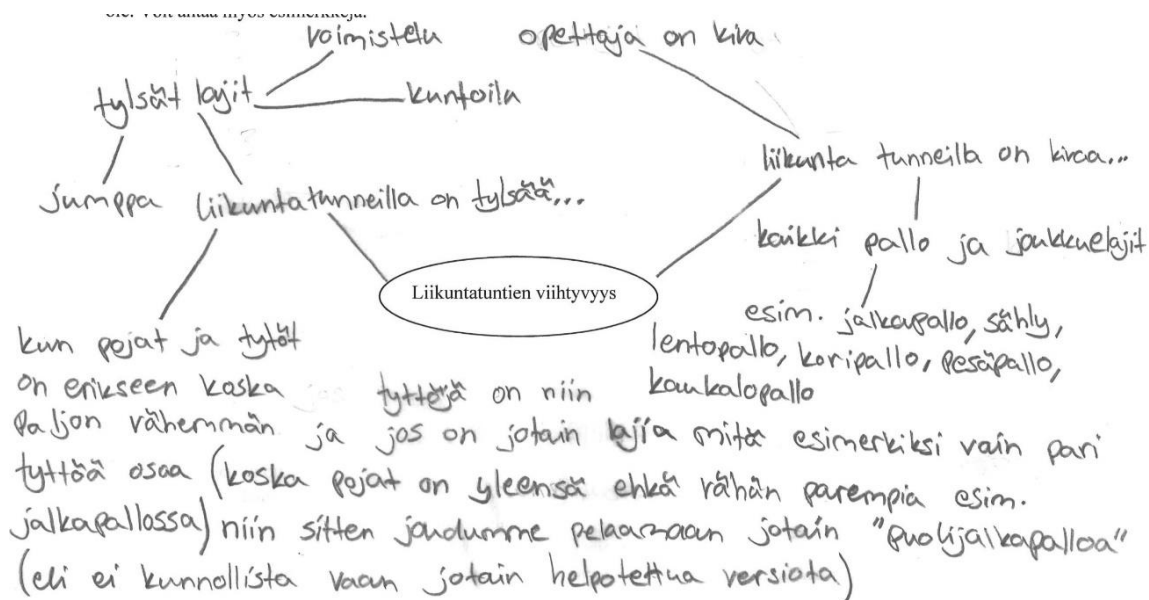 ole. Voit antaa myös esimerkkejä.
voimistelu opettaja on kiva
tylsät lajit kuntoilu
liikunta tunneilla on kivaa...
jumppa liikuntatunneilla on tylsää...
kaikki pallo ja joukkuelajit
Liikuntatuntien viihtyvyys
esim. jalkapallo, sähly,
lentopallo, koripallo, pesäpallo,
kaukalopallo
kun pojat ja tytöt
on erikseen koska tyttöjä on niin
paljon vähemmän ja jos on jotain lajia mitä esimerkiksi vain pari
tyttöä osaa (koska pojat on yleensä ehkä vähän parempia esim.
jalkapallossa) niin sitten joudumme pelaamaan jotain "puolijalkapalloa"
(eli ei kunnollista vaan jotain helpotettua versiota)